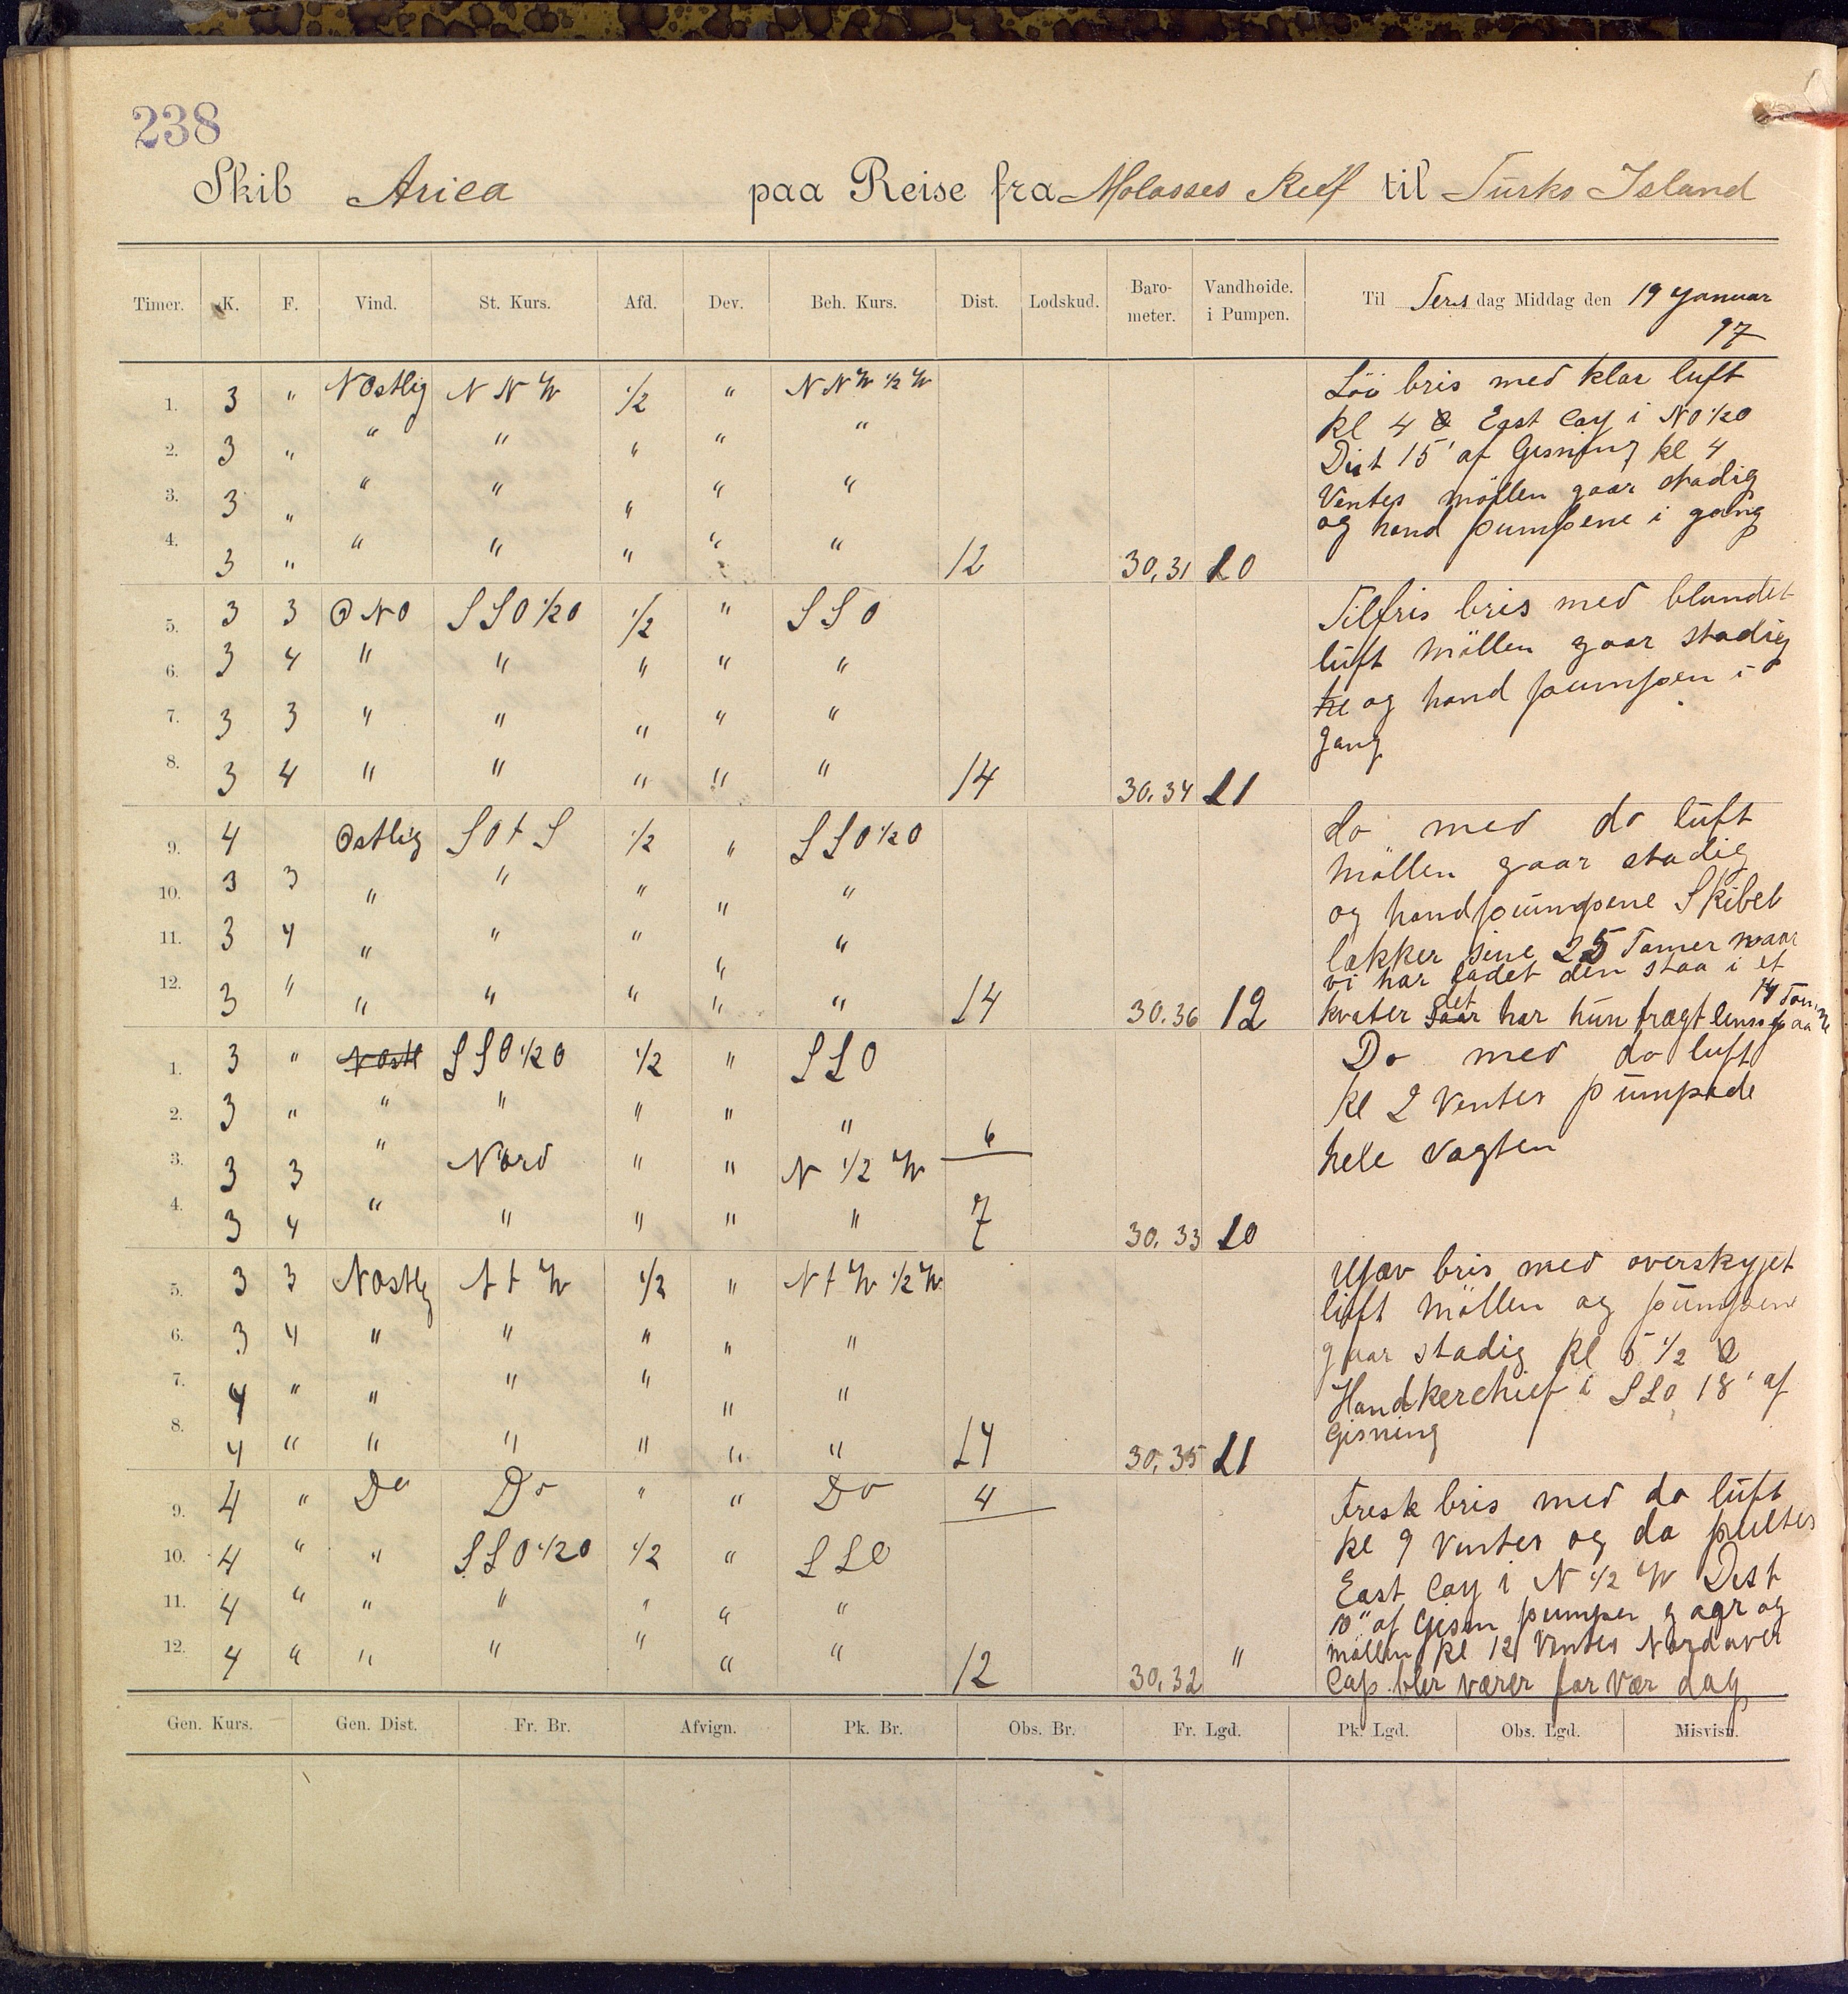 238
Skib Arica paa Reise fra Molasses Reef til Turks Island
Timer. K. F. Vind. St. Kurs. Afd. Dev. Beh. Kurs. Dist. Lodskud. Baro-meter. Vandhøide. i Pumpen. Til Tersdag Middag den 19 Januar
97
1. 3 " NOstlig N N W 1/2 " N N W 1/2 W
2. 3 " " " " " "
3. 3 " " " " " "
4. 3 " " " " " " 12 30,31 10
Löi bris med klar luft
kl 4 East Cay i NO 1/2 O
Dist 15' af Gisning kl 4
Ventes möllen gaar stadig
og hand pumpene i gang
5. 3 3 O NO S S O 1/2 O 1/2 " S S O
6. 3 4 " " " " "
7. 3 3 " " " " "
8. 3 4 " " " " " 14 30,34 11
Tilfris bris med blandet
luft Möllen gaar stadig
kl og hand pumpen i
gang
9. 4 Ostlig S O t S 1/2 " S S O 1/2 O
10. 3 3 " " " " "
11. 3 4 " " " " "
12. 3 " " " " " " 14 30.36 12
do med do luft
Möllen gaar stadig
og handpumpene Skibet
lækker sine 25 Tomer naar
vi har ladet den staa i et
kvater det har hun trægt lens paa
14 Tom
1. 3 " NOstl S S O 1/2 O 1/2 " S S O
2. 3 " " " " " " 6
3. 3 3 " Nord " " N 1/2 W
4. 3 4 " " " " " 7 30.33 10
Do med do luft
kl 2 Ventes pumpede
hele vagten
5. 3 3 NOstlg N t W 1/2 " N t W 1/2 W
6. 3 4 " " " " "
7. 4 " " " " " "
8. 4 " " " " " " 14 30,35 11
Ujæv bris med overskyjet
luft Möllen og pumpene
gaar stadig kl 5 1/2
Handkerchief i SSO 18' af
Gisning
9. 4 " Do Do " " Do 4
10. 4 " " S S O 1/2 O 1/2 " S S O
11. 4 " " " " " "
12. 4 " " " " " " 12 30,32 "
Fresk bris med do luft
kl 9 Ventes og da peiltes
East Cay i N 1/2 W Dist
10" af Gisn pumper gaar og
möllen kl 12 Ventes Nordover
Cap. blir værer for vær dag
Gen. Kurs. Gen. Dist. Fr. Br. Afvign. Pk. Br. Obs. Br. Fr. Lgd. Pk. Lgd. Obs. Lgd. Misvisn.